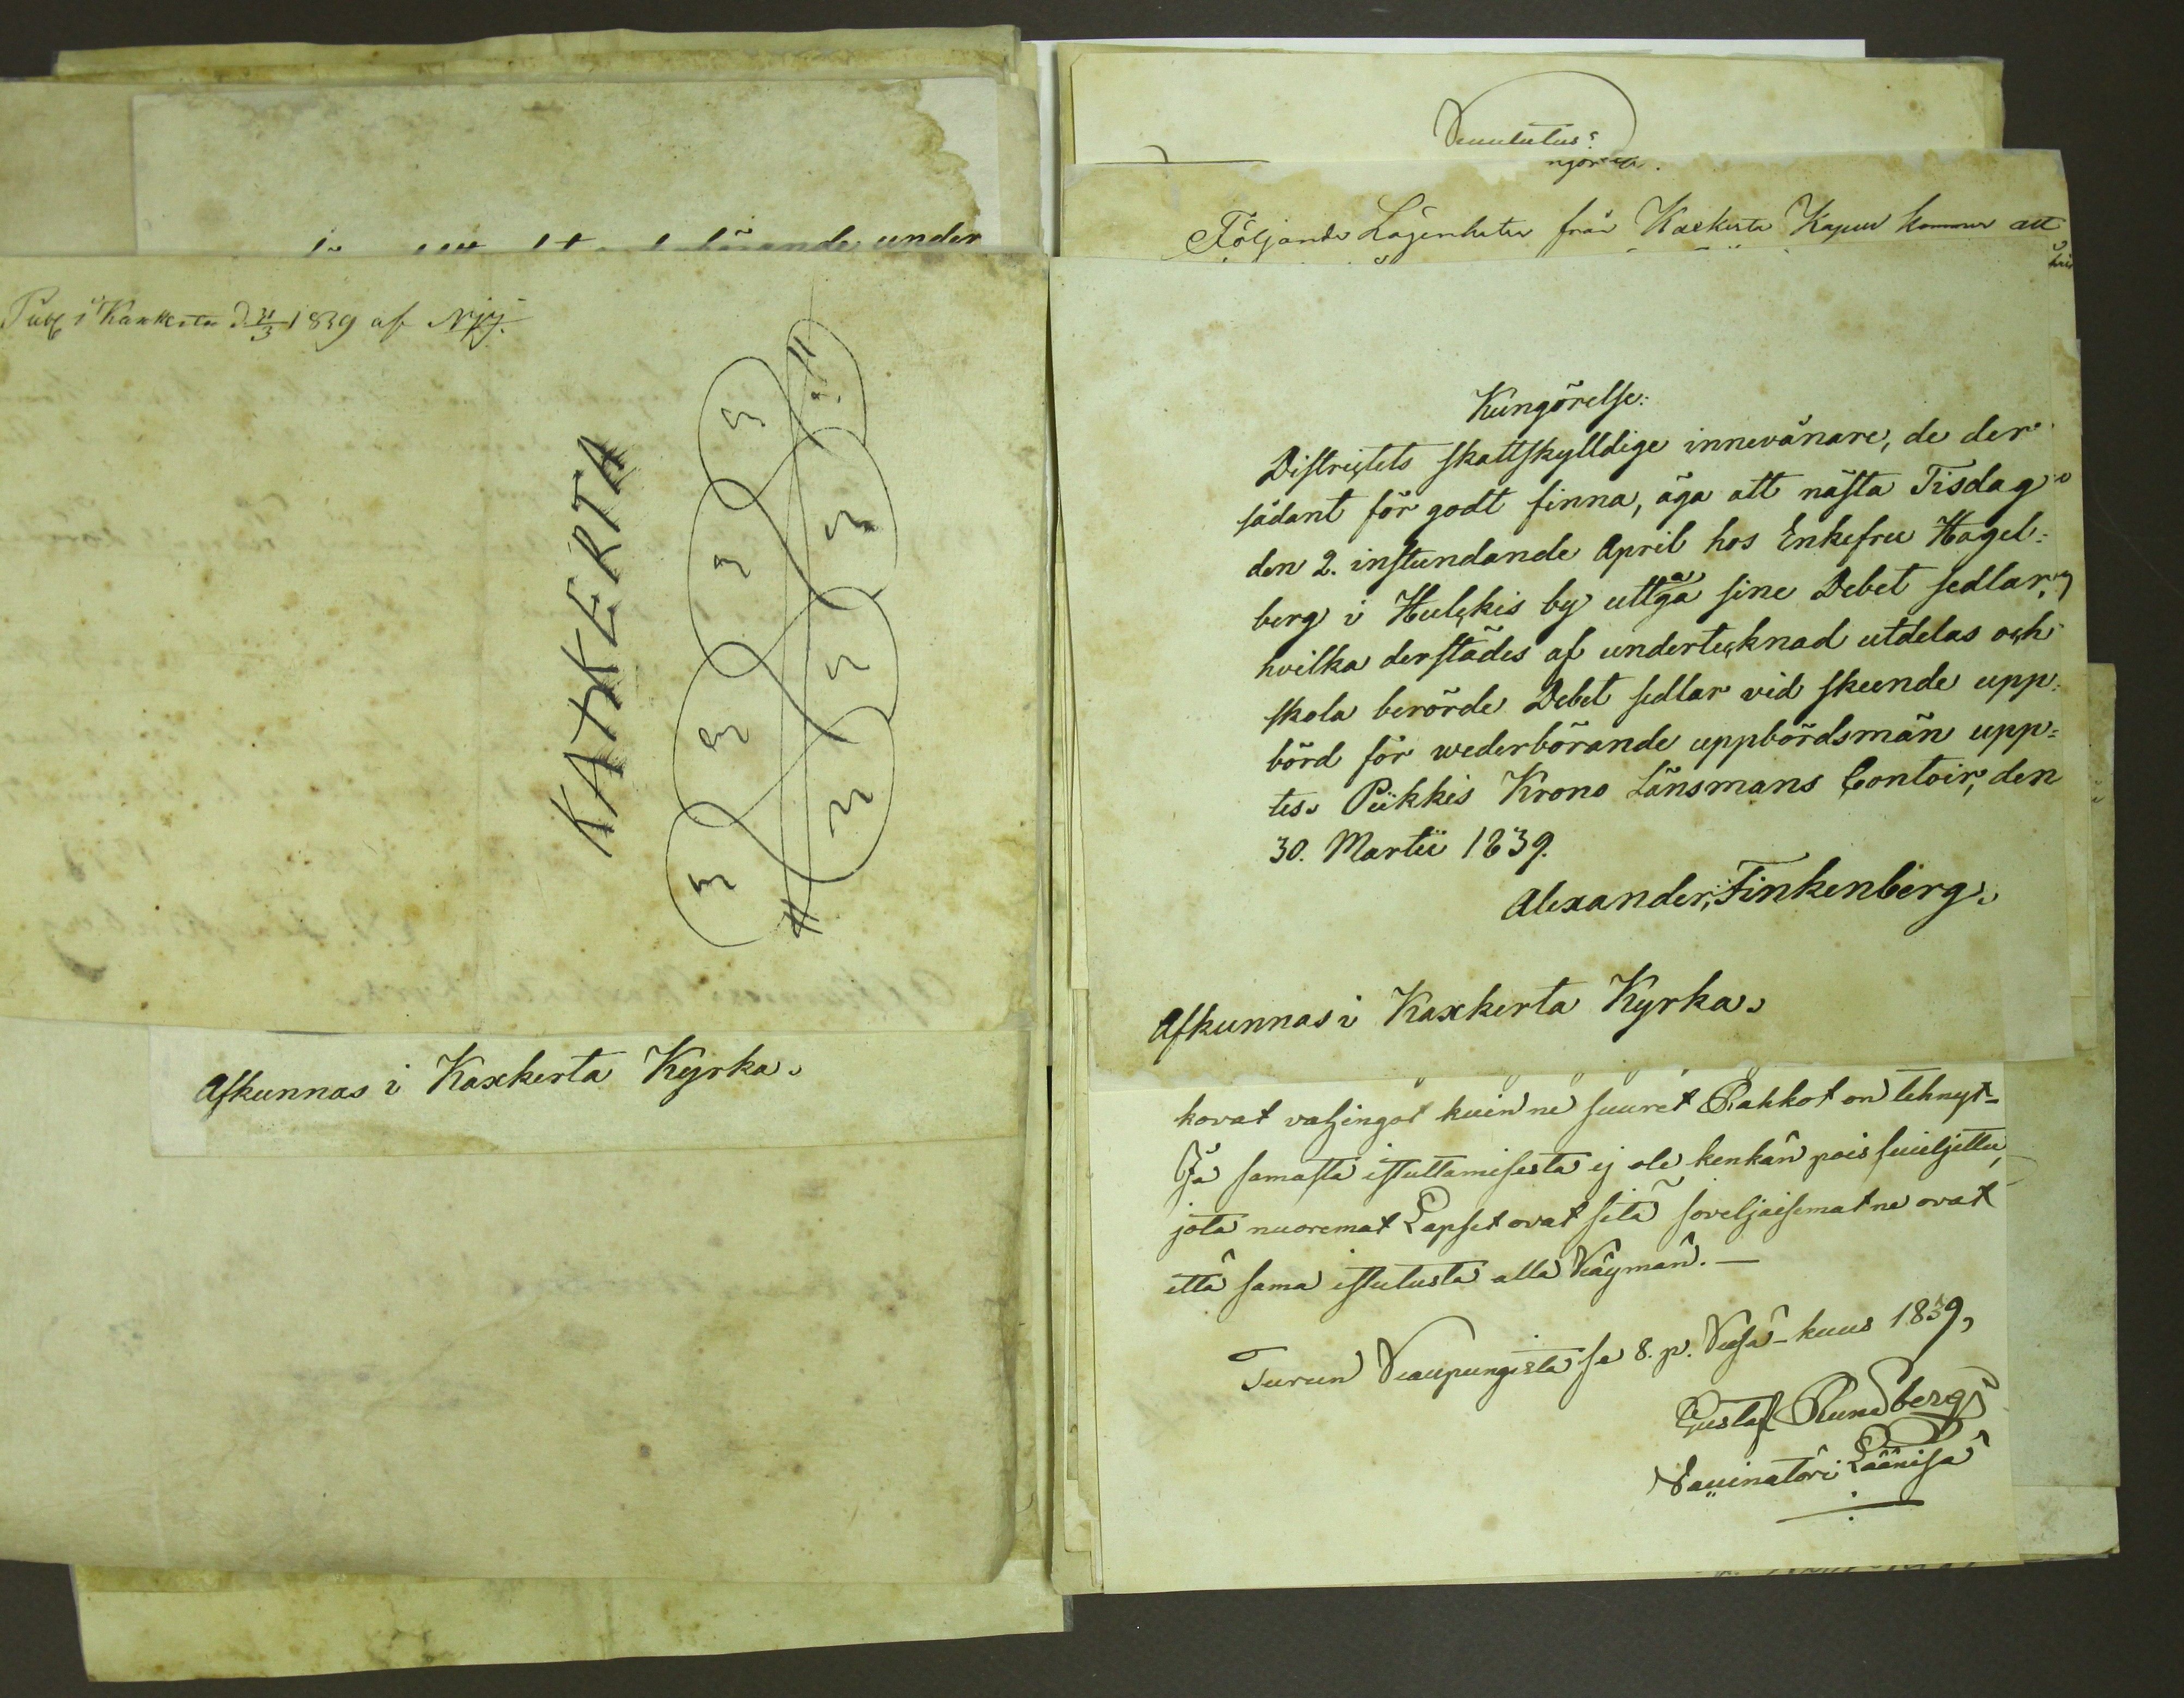 börande under
Publ i Kaxkerta d 31/3 1839 af
KAXKERTA
Afkunnas i Kaxkerta Kyrka.
Kuulutus:
Följande Lägenheter från Kaxkerta Kapell kommer att
Kungörelse:
Districtets skattskylldige innevånare, de der
sådant för godt finna, äga att nästa Tisdag
den 2. instundande April hos Enkefru Hagel:
berg i Hulckis by uttaga sine Debet sedlar,
hvilka derstädes af undertecknad utdelas och
skola berörde Debet sedlar vid skeende upp:
börd för wederbörande uppbördsmän upp:
tes. Piikkis Krono Länsmans Contoir, den
30. Martii 1839.
Alexander Finkenberg.
Afkunnas i Kaxkerta Kyrka.
kovat vahingot kuin ne suuret Rakkot on tehnyt-
Ja samasta istuttamisesta ej ole kenkän pois suuljettu,
jota nuoremat Lapset ovat sitä soveljaisemat ne ovat
että sama istutusta alla Käymän. —
Turun Kaupungista se 8. p. Kesä-kuus 1839,
Gustaf Runsberg
Läänisä